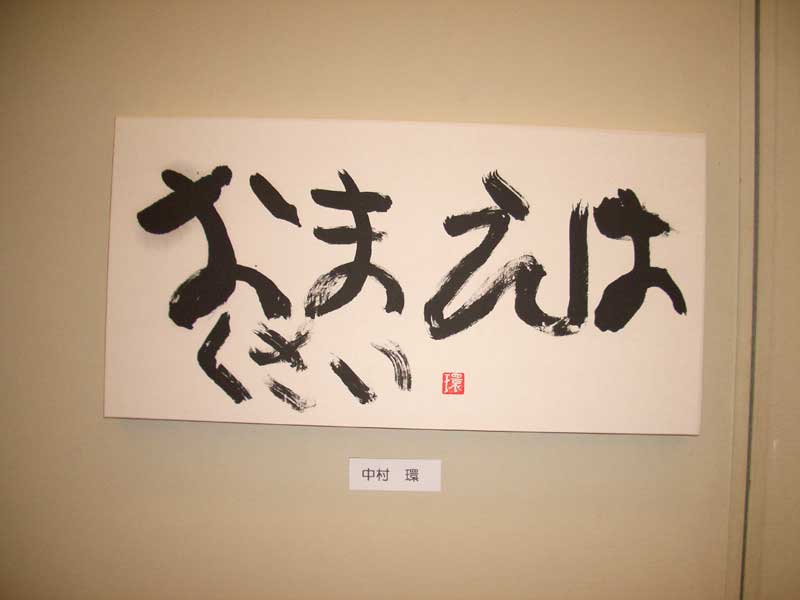 おまえは
くさい
環
中村 環